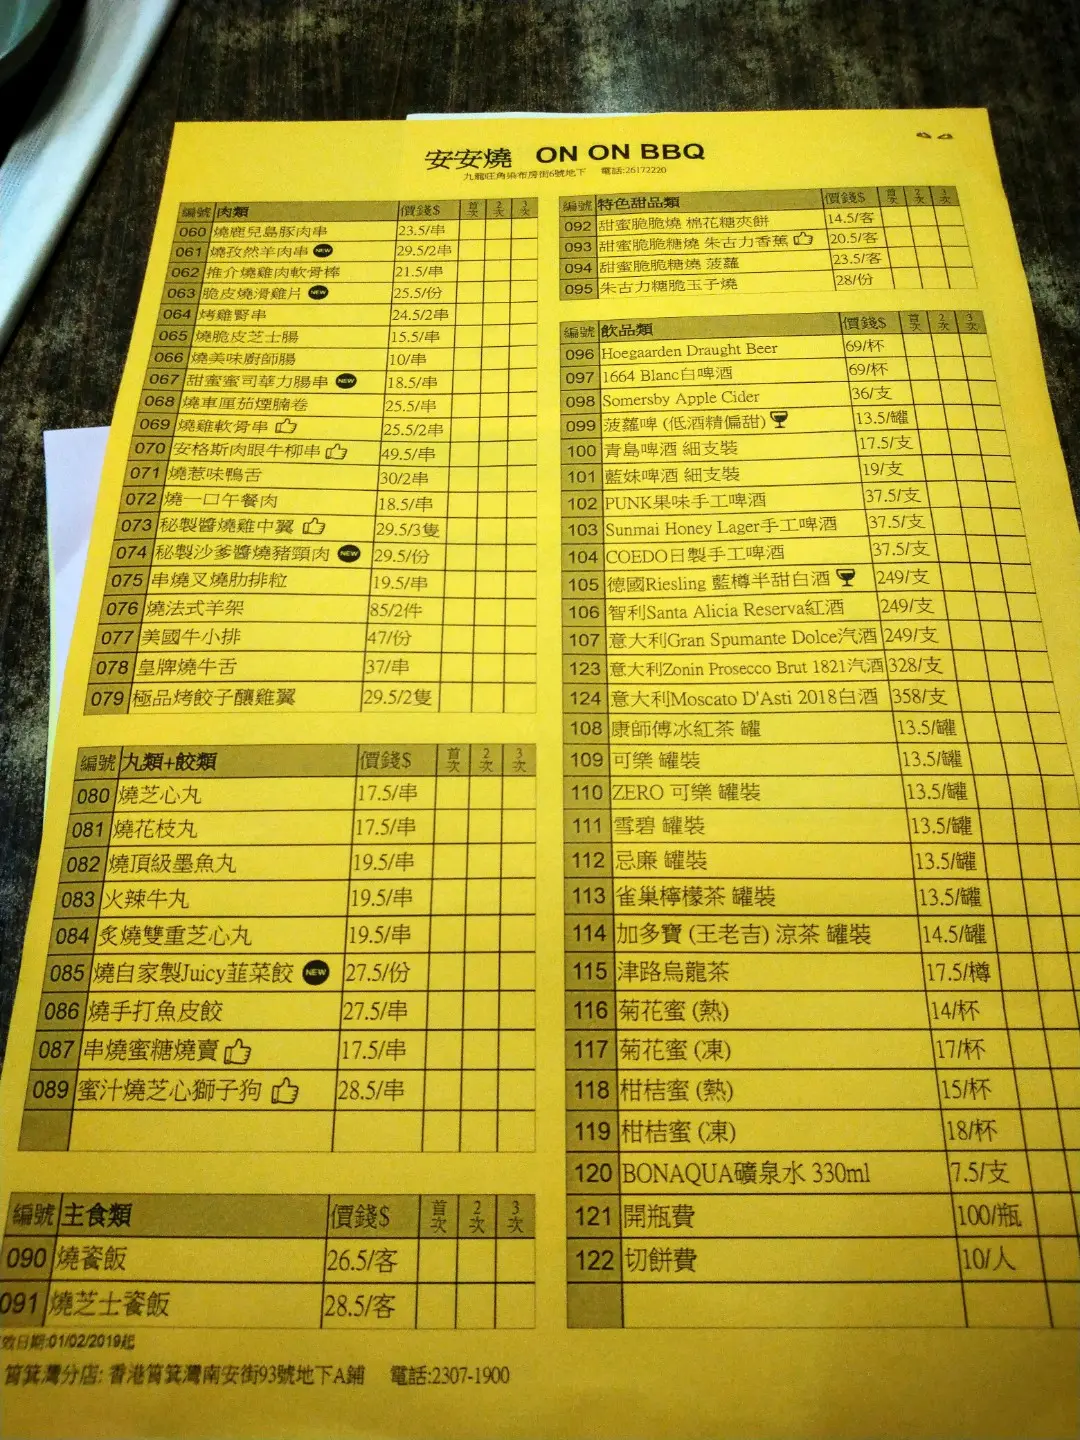 安安燒 ON ON BBQ
九龍旺角染布房街6號地下 電話:26172220
編號 肉類 價錢$ 首次 2次 3次
060 燒鹿兒島豚肉串 23.5/串
061 燒孜然羊肉串 NEW 29.5/2串
062 推介燒雞肉軟骨棒 21.5/串
063 脆皮燒滑雞片 NEW 25.5/份
064 烤雞腎串 24.5/2串
065 燒脆皮芝士腸 15.5/串
066 燒美味廚師腸 10/串
067 甜蜜蜜司華力腸串 NEW 18.5/串
068 燒車厘茄煙腩卷 25.5/串
069 燒雞軟骨串 25.5/2串
070 安格斯肉眼牛柳串 49.5/串
071 燒惹味鴨舌 30/2串
072 燒一口午餐肉 18.5/串
073 秘製醬燒雞中翼 29.5/3隻
074 秘製沙爹醬燒豬頸肉 NEW 29.5/份
075 串燒叉燒肋排粒 19.5/串
076 燒法式羊架 85/2件
077 美國牛小排 47/份
078 皇牌燒牛舌 37/串
079 極品烤餃子釀雞翼 29.5/2隻
編號 丸類+餃類 價錢$ 首次 2次 3次
080 燒芝心丸 17.5/串
081 燒花枝丸 17.5/串
082 燒頂級墨魚丸 19.5/串
083 火辣牛丸 19.5/串
084 炙燒雙重芝心丸 19.5/串
085 燒自家製Juicy韮菜餃 NEW 27.5/份
086 燒手打魚皮餃 27.5/串
087 串燒蜜糖燒賣 17.5/串
089 蜜汁燒芝心獅子狗 28.5/串
編號 主食類 價錢$ 首次 2次 3次
090 燒餈飯 26.5/客
091 燒芝士餈飯 28.5/客
效日期:01/02/2019起
筲箕灣分店: 香港筲箕灣南安街93號地下A鋪 電話:2307-1900
編號 特色甜品類 價錢$ 首次 2次 3次
092 甜蜜脆脆燒 棉花糖夾餅 14.5/客
093 甜蜜脆脆糖燒 朱古力香蕉 20.5/客
094 甜蜜脆脆糖燒 菠蘿 23.5/客
095 朱古力糖脆玉子燒 28/份
編號 飲品類 價錢$ 首次 2次 3次
096 Hoegaarden Draught Beer 69/杯
097 1664 Blanc白啤酒 69/杯
098 Somersby Apple Cider 36/支
099 菠蘿啤 (低酒精偏甜) 13.5/罐
100 青島啤酒 細支裝 17.5/支
101 藍妹啤酒 細支裝 19/支
102 PUNK果味手工啤酒 37.5/支
103 Sunmai Honey Lager手工啤酒 37.5/支
104 COEDO日製手工啤酒 37.5/支
105 德國Riesling 藍樽半甜白酒 249/支
106 智利Santa Alicia Reserva紅酒 249/支
107 意大利Gran Spumante Dolce汽酒 249/支
123 意大利Zonin Prosecco Brut 1821汽酒 328/支
124 意大利Moscato D'Asti 2018白酒 358/支
108 康師傅冰紅茶 罐 13.5/罐
109 可樂 罐裝 13.5/罐
110 ZERO 可樂 罐裝 13.5/罐
111 雪碧 罐裝 13.5/罐
112 忌廉 罐裝 13.5/罐
113 雀巢檸檬茶 罐裝 13.5/罐
114 加多寶 (王老吉) 涼茶 罐裝 14.5/罐
115 津路烏龍茶 17.5/樽
116 菊花蜜 (熱) 14/杯
117 菊花蜜 (凍) 17/杯
118 柑桔蜜 (熱) 15/杯
119 柑桔蜜 (凍) 18/杯
120 BONAQUA礦泉水 330ml 7.5/支
121 開瓶費 100/瓶
122 切餅費 10/人